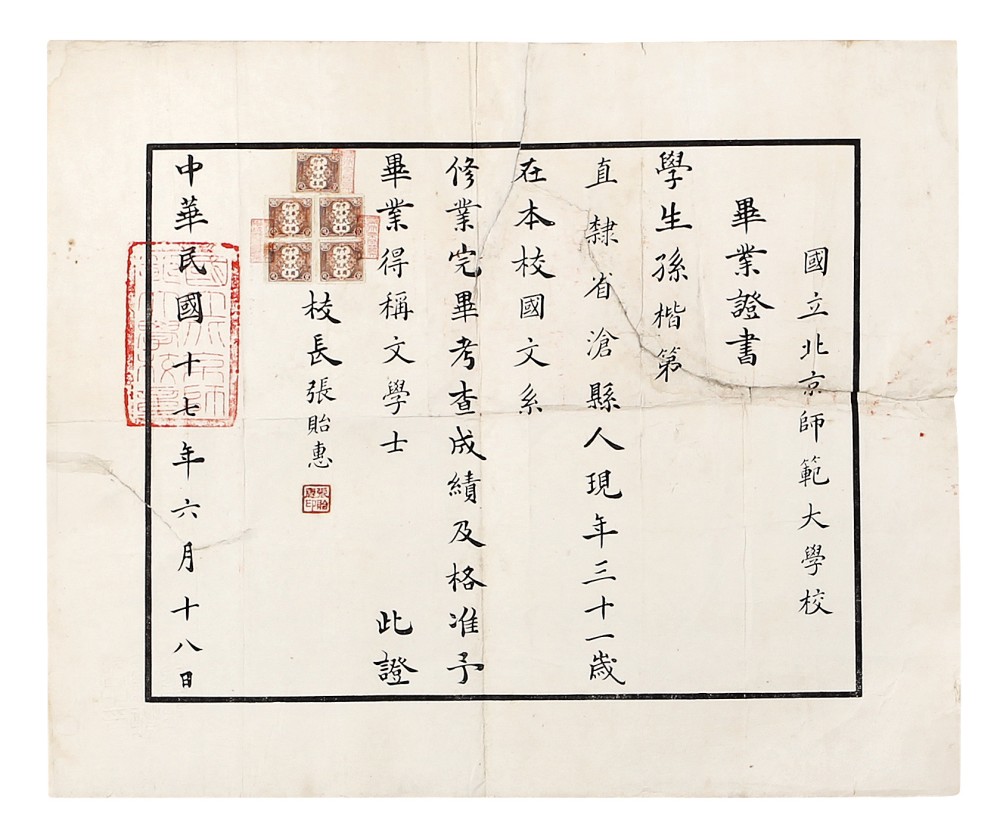 國立北京師範大學校
畢業證書
學生孫楷第
直隸省滄縣人現年三十一歲
在本校國文系
修業完畢考查成績及格准予
畢業得稱文學士 此證
校長張貽惠
張貽惠印
中華民國十七年六月十八日